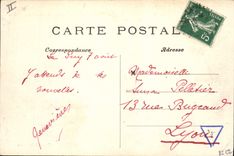 II
CARTE POSTALE
Correspondance
Adresse
Le Puy 1 août
J'attends de te
nouvelles
Geneviève
Mademoiselle
Suzan Pelletier
13 rue Bugeaud
Lyon
5